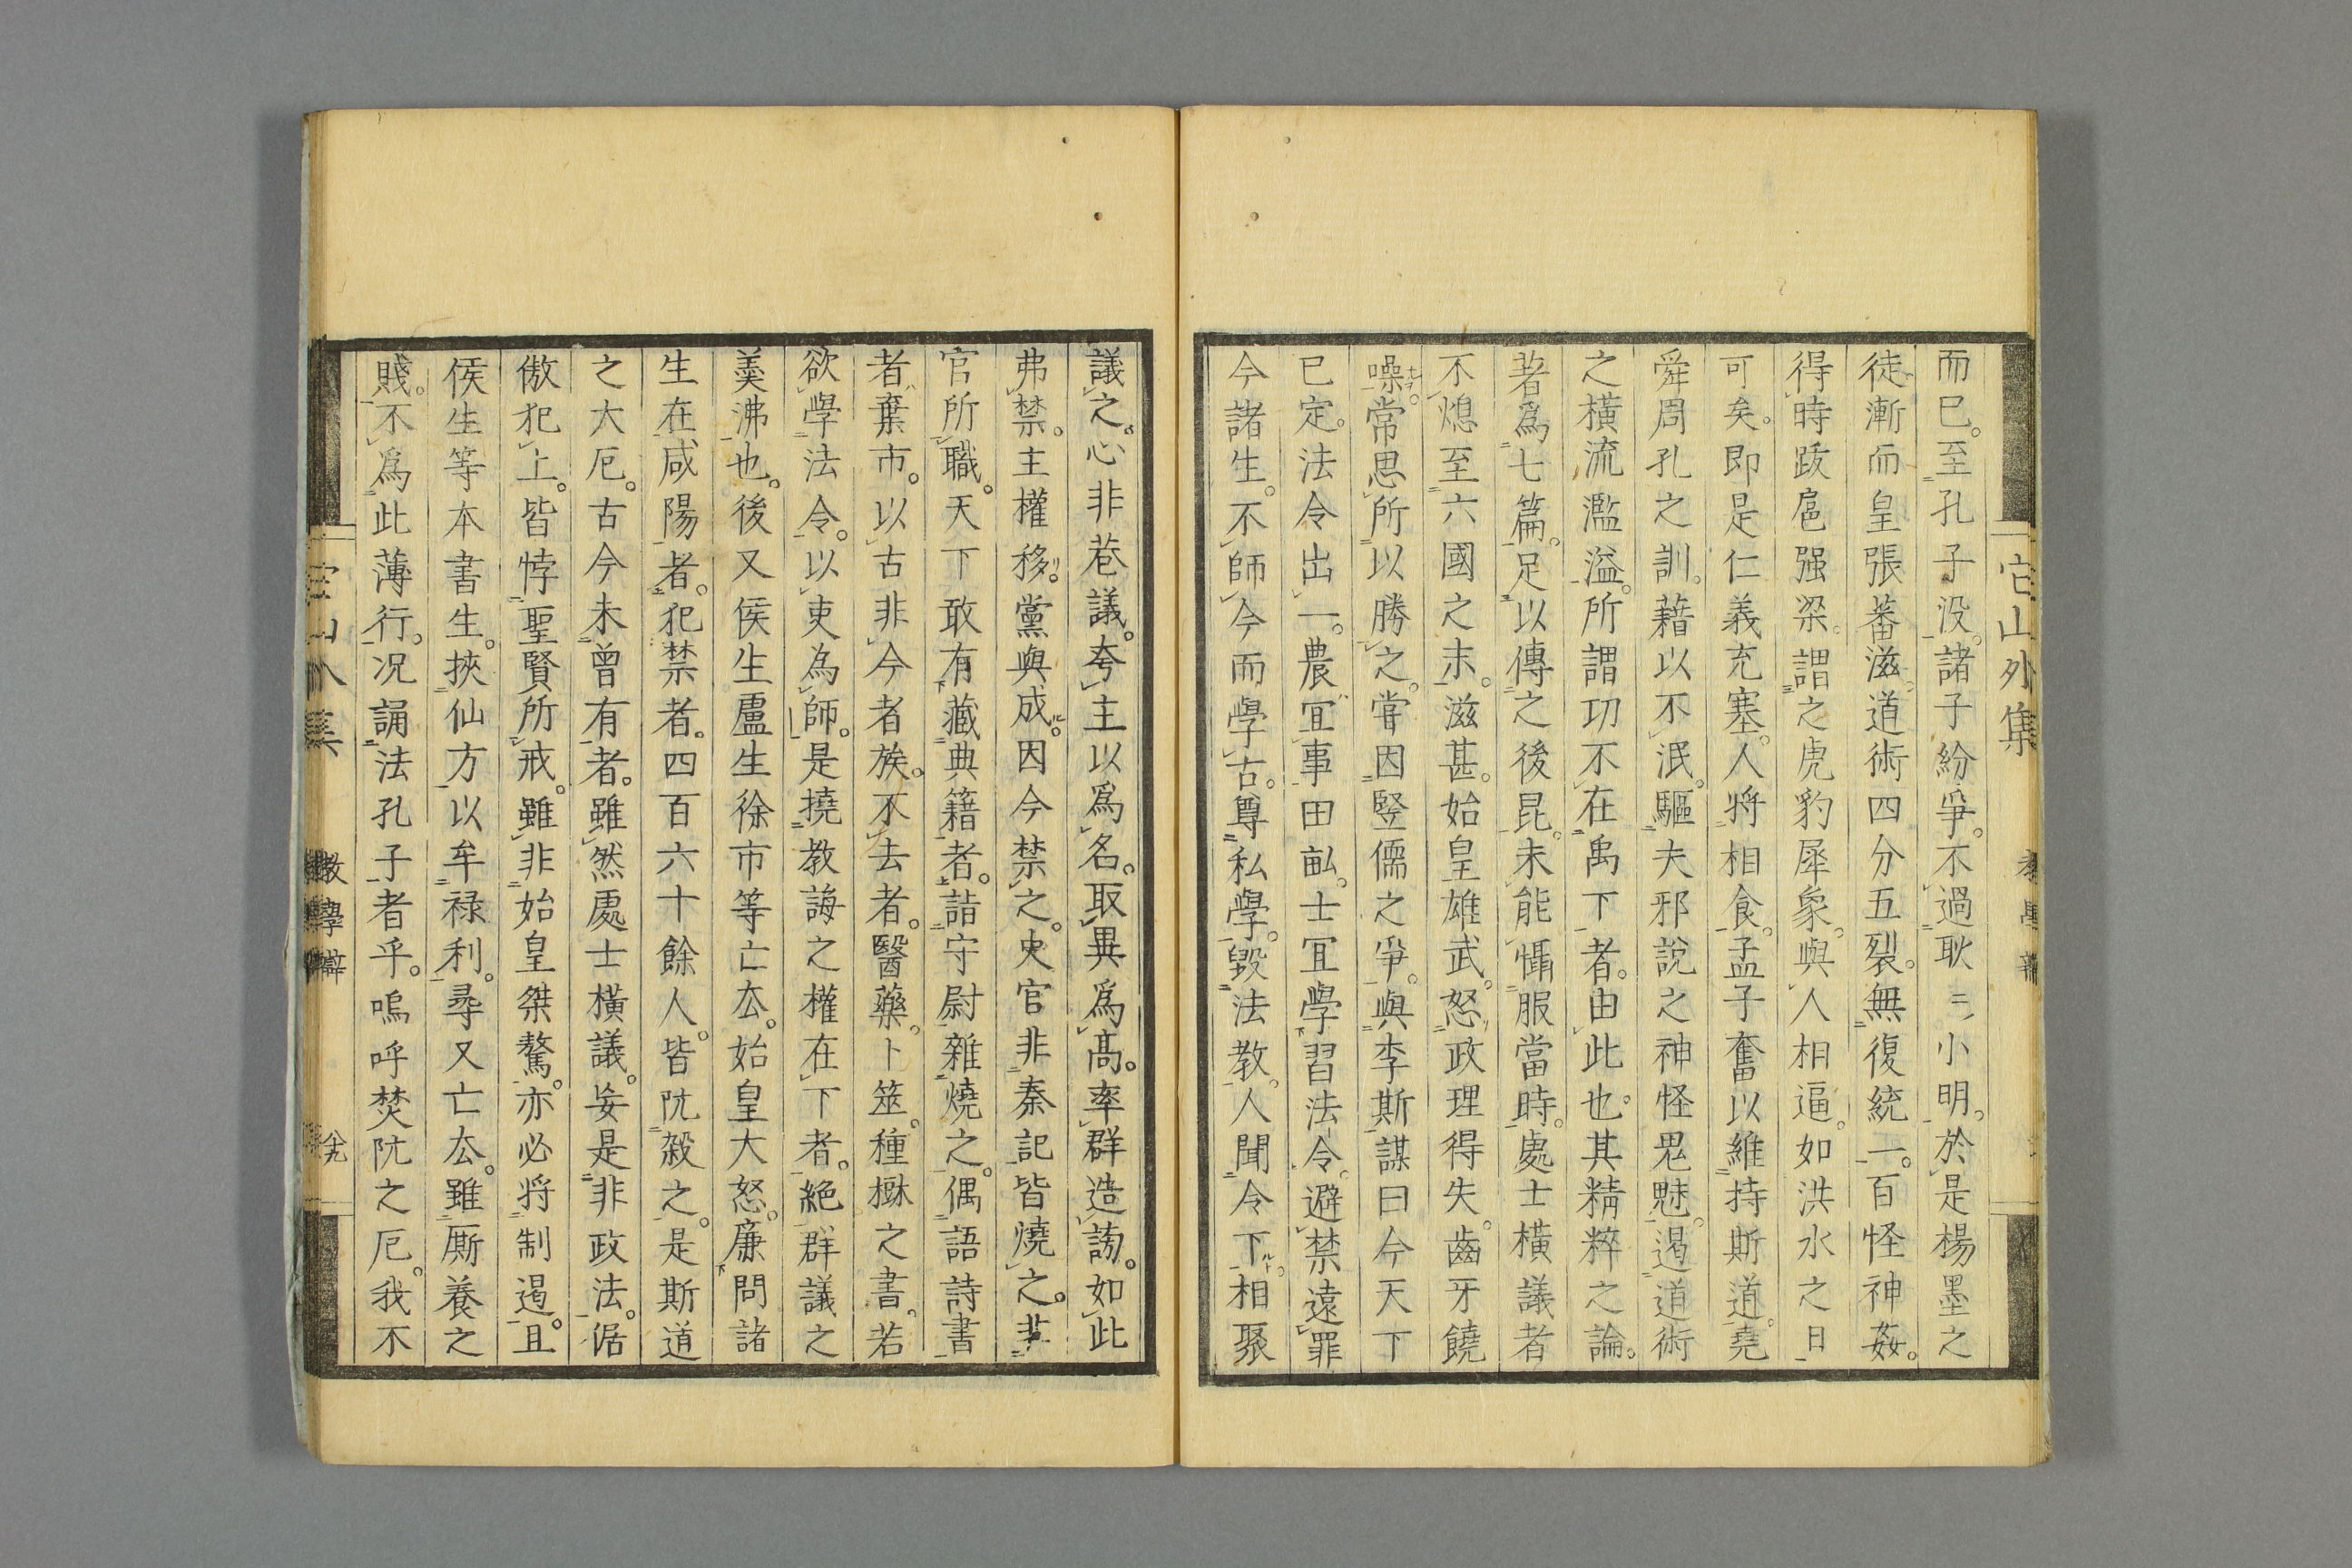 而已。至孔子没。諸子紛爭。不過耿〻小明。於是楊墨之
徒漸而皇張蕃滋道術四分五裂。無復統一。百怪神姦。
得時跋扈强梁。謂之虎豹犀象。與人相逼。如洪水之日
可矣。即是仁義充塞。人将相食。孟子奮以維持斯道。堯
舜周孔之訓。藉以不泯。驅夫邪說之神怪鬼魅。遏道術
之橫流濫溢。所謂功不在禹下者。由此也。其精粹之論。
著爲七篇。足以傳之後昆。未能懾服當時。處士橫議者
不熄至六國之末。滋甚。始皇雄武。怒政理得失。齒牙饒
噪。常思所以勝之。甞因竪儒之爭。與李斯謀曰今天下
已定。法令出一。農宜事田畝。士宜學習法令。避禁遠罪
今諸生。不師今而學古。尊私學。毀法教。人聞令下。相聚
議之。心非巷議。夸主以爲名。取異爲高。率群造謗。如此
弗禁。主權移。黨與成。因今禁之。史官非秦記皆燒之。非
官所職。天下敢有藏典籍者。詣守尉雜燒之。偶語詩書
者棄市。以古非今者族。不去者。醫藥卜筮。種樹之書。若
欲學法令。以吏為師。是撓教誨之權在下者。絕群議之
羹沸也。後又侯生盧生徐市等亡去。始皇大怒。廉問諸
生在咸陽者。犯禁者。四百六十餘人。皆阬殺之。是斯道
之大厄。古今未曾有者。雖然處士橫議。妄是非政法。倨
傲犯上。皆悖聖賢所戒。雖非始皇桀驁。亦必将制遏。且
侯生等本書生。挾仙方以牟禄利。尋又亡去。雖厮養之
賤。不爲此薄行。况誦法孔子者乎。嗚呼焚阬之厄。我不
它山外集
教學辯